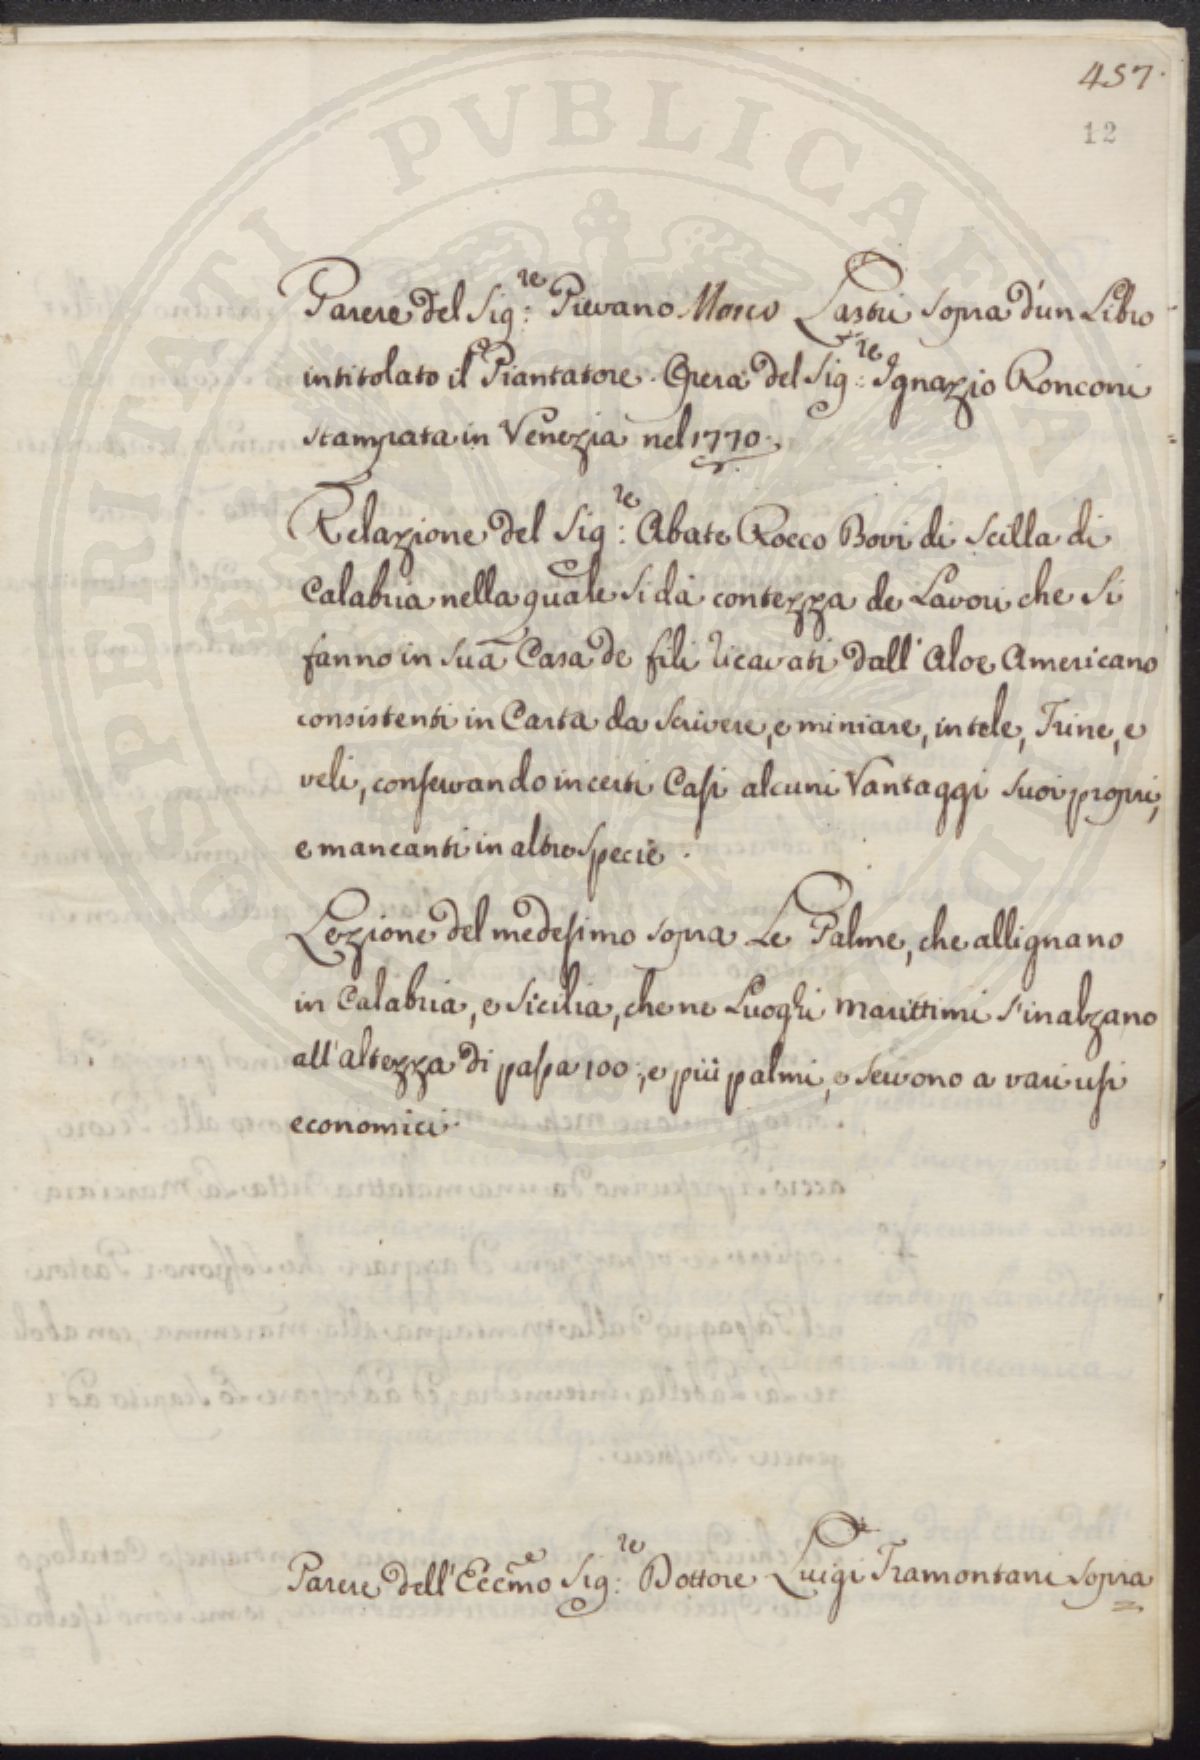 457.
12
Parere del Sig:re Pievano Marco Lastri sopra d'un Libro
intitolato il Piantatore. Opera del Sig:re Ignazio Ronconi
stampata in Venezia nel 1770.
Relazione del Sig:re Abate Rocco Bovi di Scilla di
Calabria nella quale si dà contezza de Lavori che si
fanno in sua Casa de fili ricavati dall'Aloe Americano
consistenti in Carta da scrivere, e miniare, in tele, Trine, e
veli, conservando in certi Casi alcuni Vantaggi suoi proprii,
e mancanti in altre specie.
Lezione del medesimo sopra Le Palme, che allignano
in Calabria, e Sicilia, che ne Luoghi marittimi s'inalzano
all'altezza di passa 100:, e più palmi, e servono a varii usi
economici.
Parere dell'Eccmo Sig:re Dottore Luigi Tramontani sopra
PROSPERITATI PVBLICAE AVGENDAE